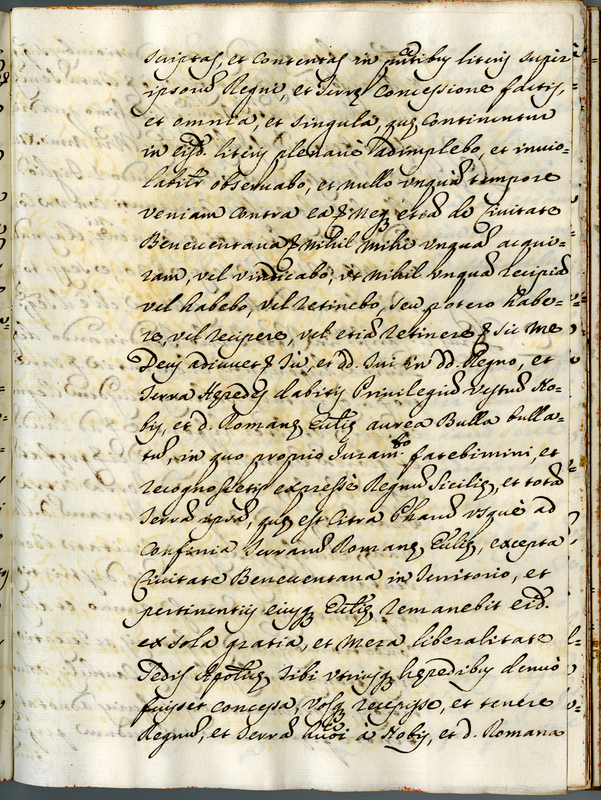 scriptas, et contentas in pñtibus literis super
ipsorũ Regni, et Terrę concessione factis,
et omnia, et singula, quę continentur
in eisd. literis plenariè adimplebo, et invio-
labilr̃ observabo, et nullo vnquã tempore
veniam contra ea & neq, etiã de Civitate
Beneuentana & nihil mihi vnquã acqui-
ram, vel vindicabo, vt nihil vnquã recipiã
vel habebo, vel retinebo, seu potero habe-
re, vel recipere, vel etiã retinere & sic me
Deus adiuuet & Tu, et dd. Tui in dd. Regno, et
Terra Hęredes dabitis Privilegiũ vestrũ No-
bis, et d. Romanę Ecclię aurea Bulla bulla-
tũ, in quo proprio Iuram.to fatebimini, et
recognoscetis expressè Regnũ Sicilię, et totã
Terrã ipsã, quę est citra Pharũ vsquè ad
confinia Terrarũ Romanę Ecclię, excepta
Civitate Beneuentana in Territorio, et
pertinentijs eiusq, Ecclię remanebit eid.
ex sola gratia, et mera liberalitate
Sedis Aplicę, Tibi vtriusq, hęredibus denuò
fuisset concessa, vosq, recepisse, et tenere
Regnũ, et Terrã à Nobis, et d. Romana